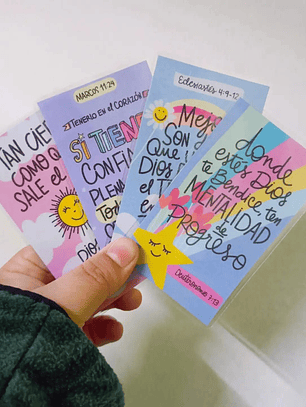 TAN CIE
COMO Q
SALE EL
MARCOS 11:24
¡TENERLO EN EL CORAZÓN
SI TIENE
CONFIA
PLENA
Todo
DIOS
Eclesiastés 4:9-12
MEJO
SON d
QUE U
DIOS
EL T
EN
donde
estés Dios
te Bendice, ten
MENTALIDAD
de
PROGRESO
Deuteronomio 7:13